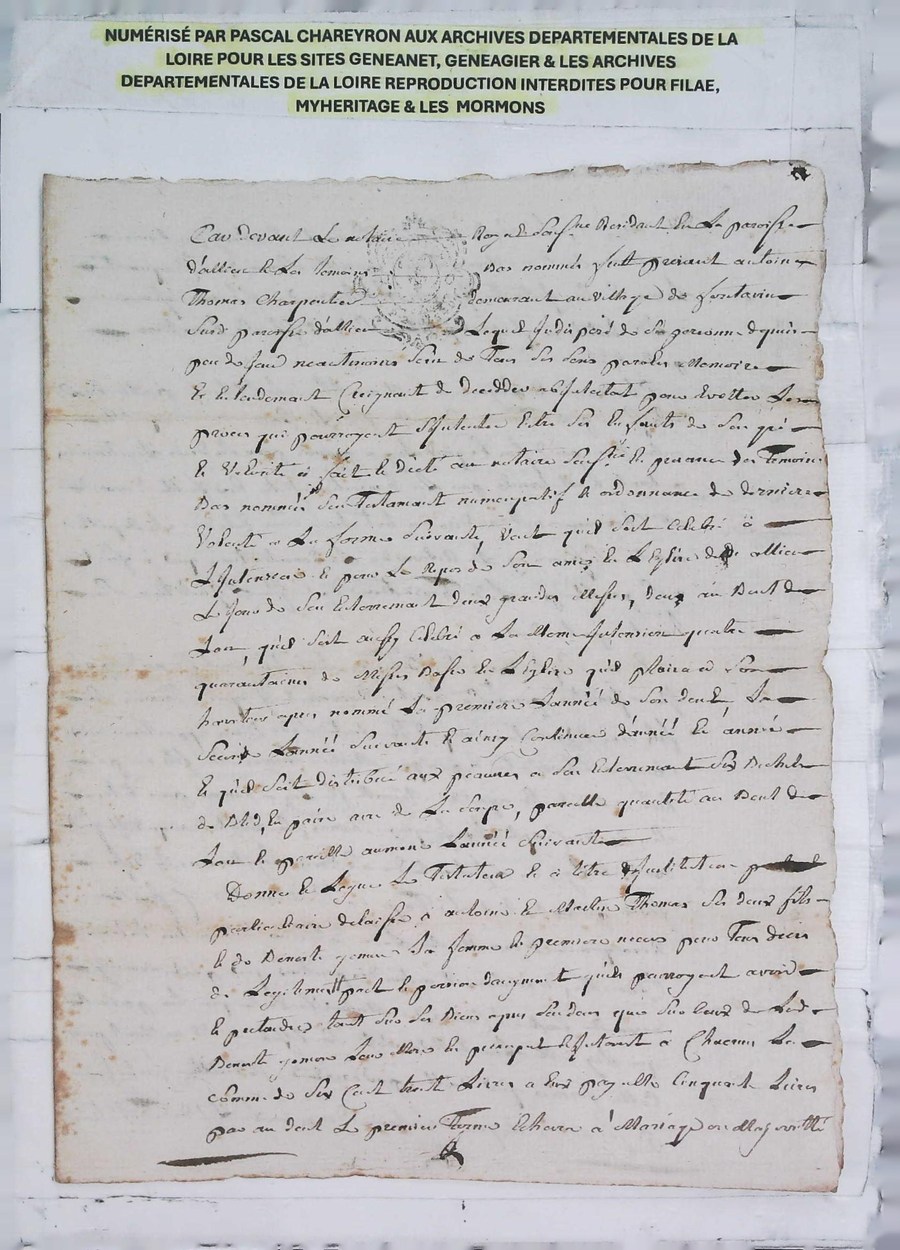 NUMÉRISÉ PAR PASCAL CHAREYRON AUX ARCHIVES DEPARTEMENTALES DE LA
LOIRE POUR LES SITES GENEANET, GENEAGIER & LES ARCHIVES
DEPARTEMENTALES DE LA LOIRE REPRODUCTION INTERDITES POUR FILAE,
MYHERITAGE & LES MORMONS
Par devant Le notaire Royal Residant En La paroisse
d'allieu Et Les temoins Bas nommés fut present antoine
Thomas Charpentier demeurant au village de
Susd paroisse d'allieu Lequel Indisposé de sa personne depuis
peu de jour neantmoins sein de Tous ses sens parolle Memoire
Et Entendement Creignant de deceder pour Eviter Les
proces qui pourroyent Entre ses Enfants de son gré
Et Volonté a fait Et dicté au notaire Et presance des Temoins
Bas nommés son Testament nuncupatif Et ordonnance de derniere
Volonté a La forme suivante, Veut qu'il soit Celebré a
L'Intension Et pour Le Repos de son ame En L'Eglise dud allieu
Le Jour de son Enterrement deux grandes Messes, deux au Bout de
Lan, qu'il soit aussy Celebré a La Meme Intension quatre
quarantaines de Messes Basse En L'Eglise qu'il plaira a son
heritier apres nommé La premiere L'année de son deces La
Seconde L'année suivante Et ainsy Continuer d'année En année
Et qu'il soit distribué aux pauvres a son Enterrement six Bichets
de Bled En pain de La soupe, pareille quantité au Bout de
Lan Et pareille aumone L'année suivante
Donne Et Legue Le Testateur Et a titre d'Institution
particuliaire delaisse a antoine Et Thomas ses deux fils
Et de Benoite sa femme En premiere noces pour Tous droits
de Legitime part Et portion daugment qu'ils pourroyent avoir
Et pretendre tant sur ses Biens apres son deces que sur Ceux de Lad
Benoite Leur Mere a Chacun La
somme de six Cent trente Livres a Eux payable Cinquante Livres
par an dont Le premier Terme Echera a Mariage ou Majorité